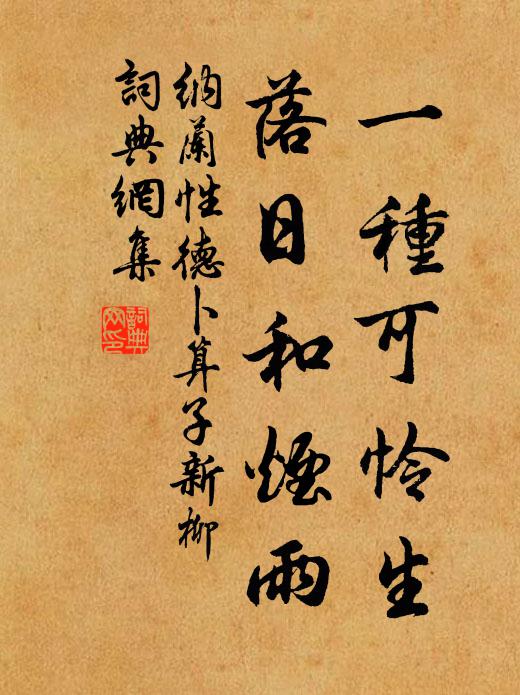 一種可怜生
落日和煙雨
納蘭性德卜算子新柳
詞典網集
詞典網印